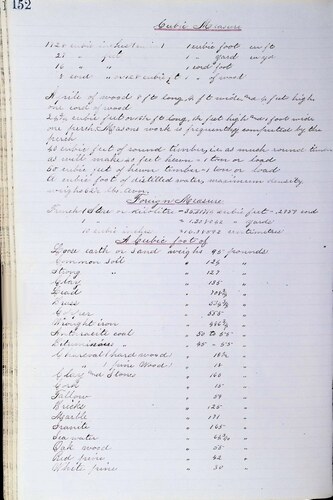 152
Cubic Measure
1728 cubic inches 1 cubic foot cu ft
27 " feet 1 " yard cu yd
16 " " 1 cord foot
8 cord " or 128 cubic ft 1 " of wood
A pile of wood 8 ft long, 4 ft wide and 4 ft high
one cord of wood
24¾ cubic feet or 16½ ft long, 1½ feet high and 1 foot wide
one perch. Masons work is frequently computed by the
perch
cubic feet of round timber, i.e. as much round timber
as will make 40 feet hewn = 1 ton or load
50 cubic feet of hewn timber = 1 ton or load
A cubic foot of distilled water, maximum density
weighs
Foreign Measure
French 1 Stere or
1 " = " yards
10 cubic
A Cubic foot of
Loose earth or sand weighs 95 pounds
Common soil " 124 "
Strong " " 127 "
Clay " 135 "
Lead " 708¾ "
Brass " 534¾ "
Copper " 555 "
Wrought iron " 486¾ "
Anthracite coal " 50 to 55 "
Bituminous " " 45 - 55 "
Charcoal (hard wood) " 18½ "
" (pine wood) " 18 "
Clay and Stones " 160 "
Cork " 15 "
Tallow " 59 "
Bricks " 125 "
Marble " 171 "
Granite " 165 "
Sea water " "
Oak wood " 55 "
Red pine " 42 "
White pine " 30 "